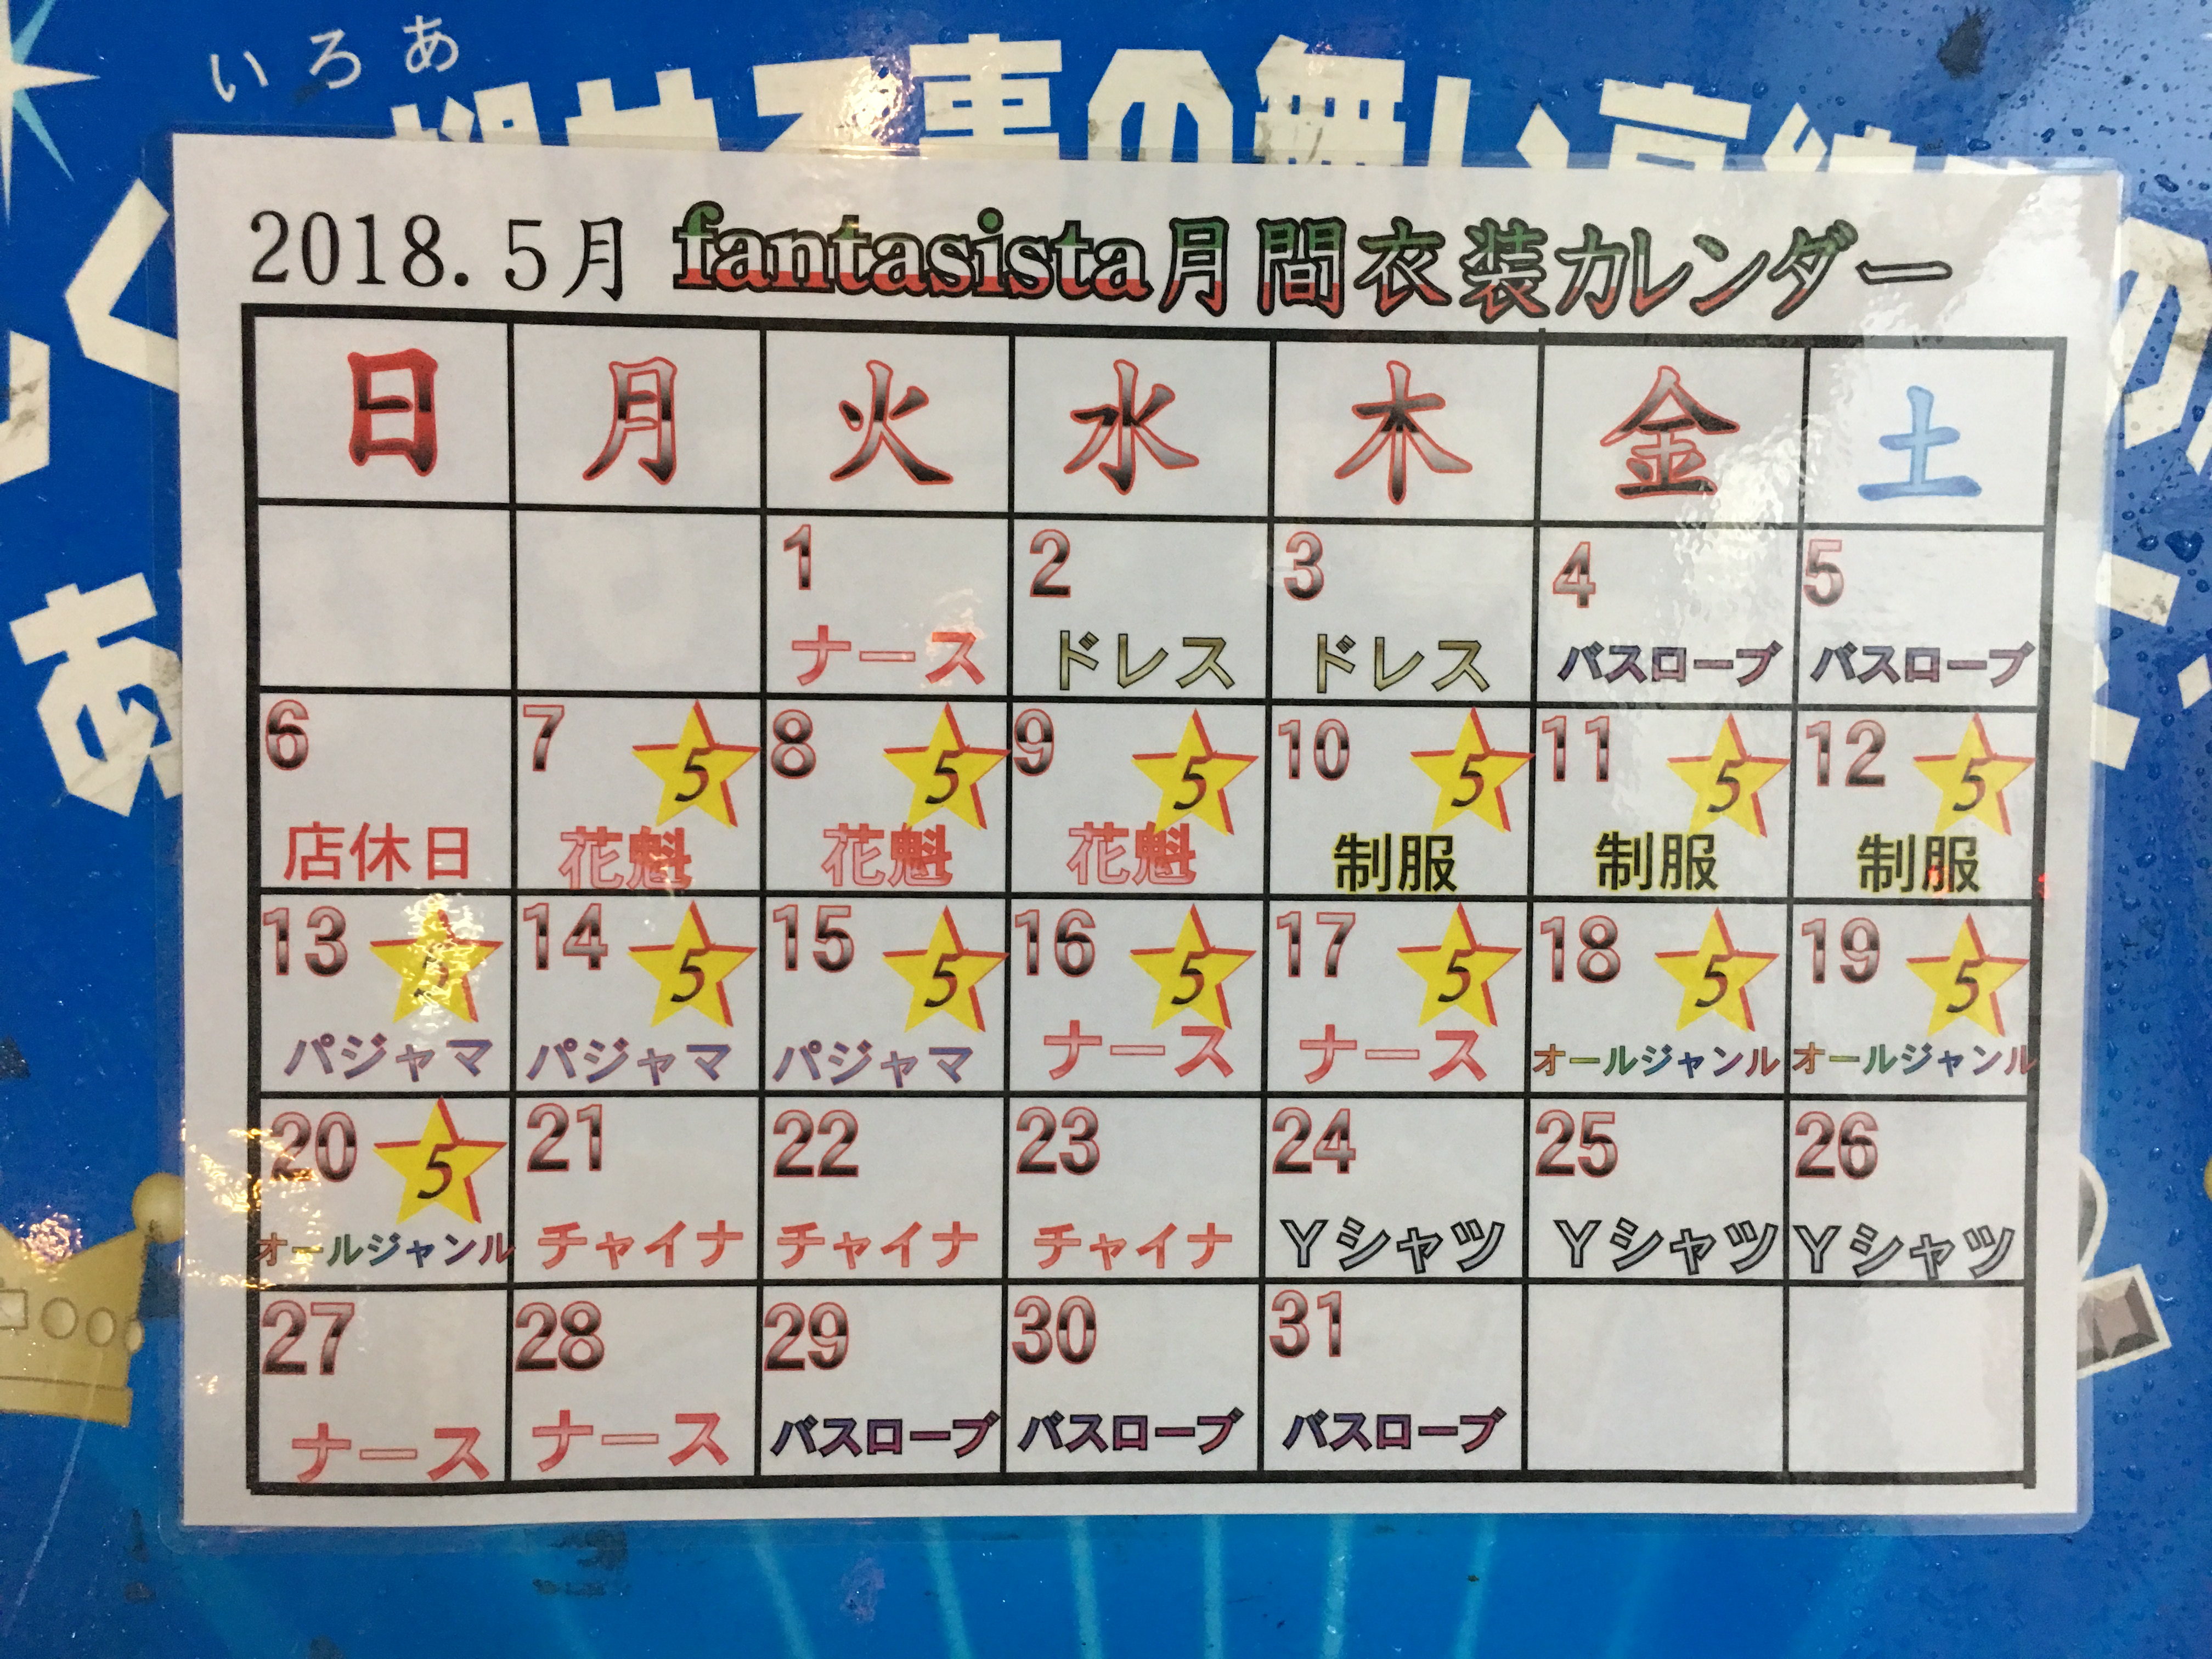 いろあ
2018.5月 fantasista月間衣装カレンダー
日 月 火 水 木 金 土
1 2 3 4 5
ナース ドレス ドレス バスローブ バスローブ
6 7 5 8 5 9 5 10 5 11 5 12 5
店休日 花魁 花魁 花魁 制服 制服 制服
13 5 14 5 15 5 16 5 17 5 18 5 19 5
パジャマ パジャマ パジャマ ナース ナース オールジャンル オールジャンル
20 5 21 22 23 24 25 26
オールジャンル チャイナ チャイナ チャイナ Yシャツ Yシャツ Yシャツ
27 28 29 30 31
ナース ナース バスローブ バスローブ バスローブ